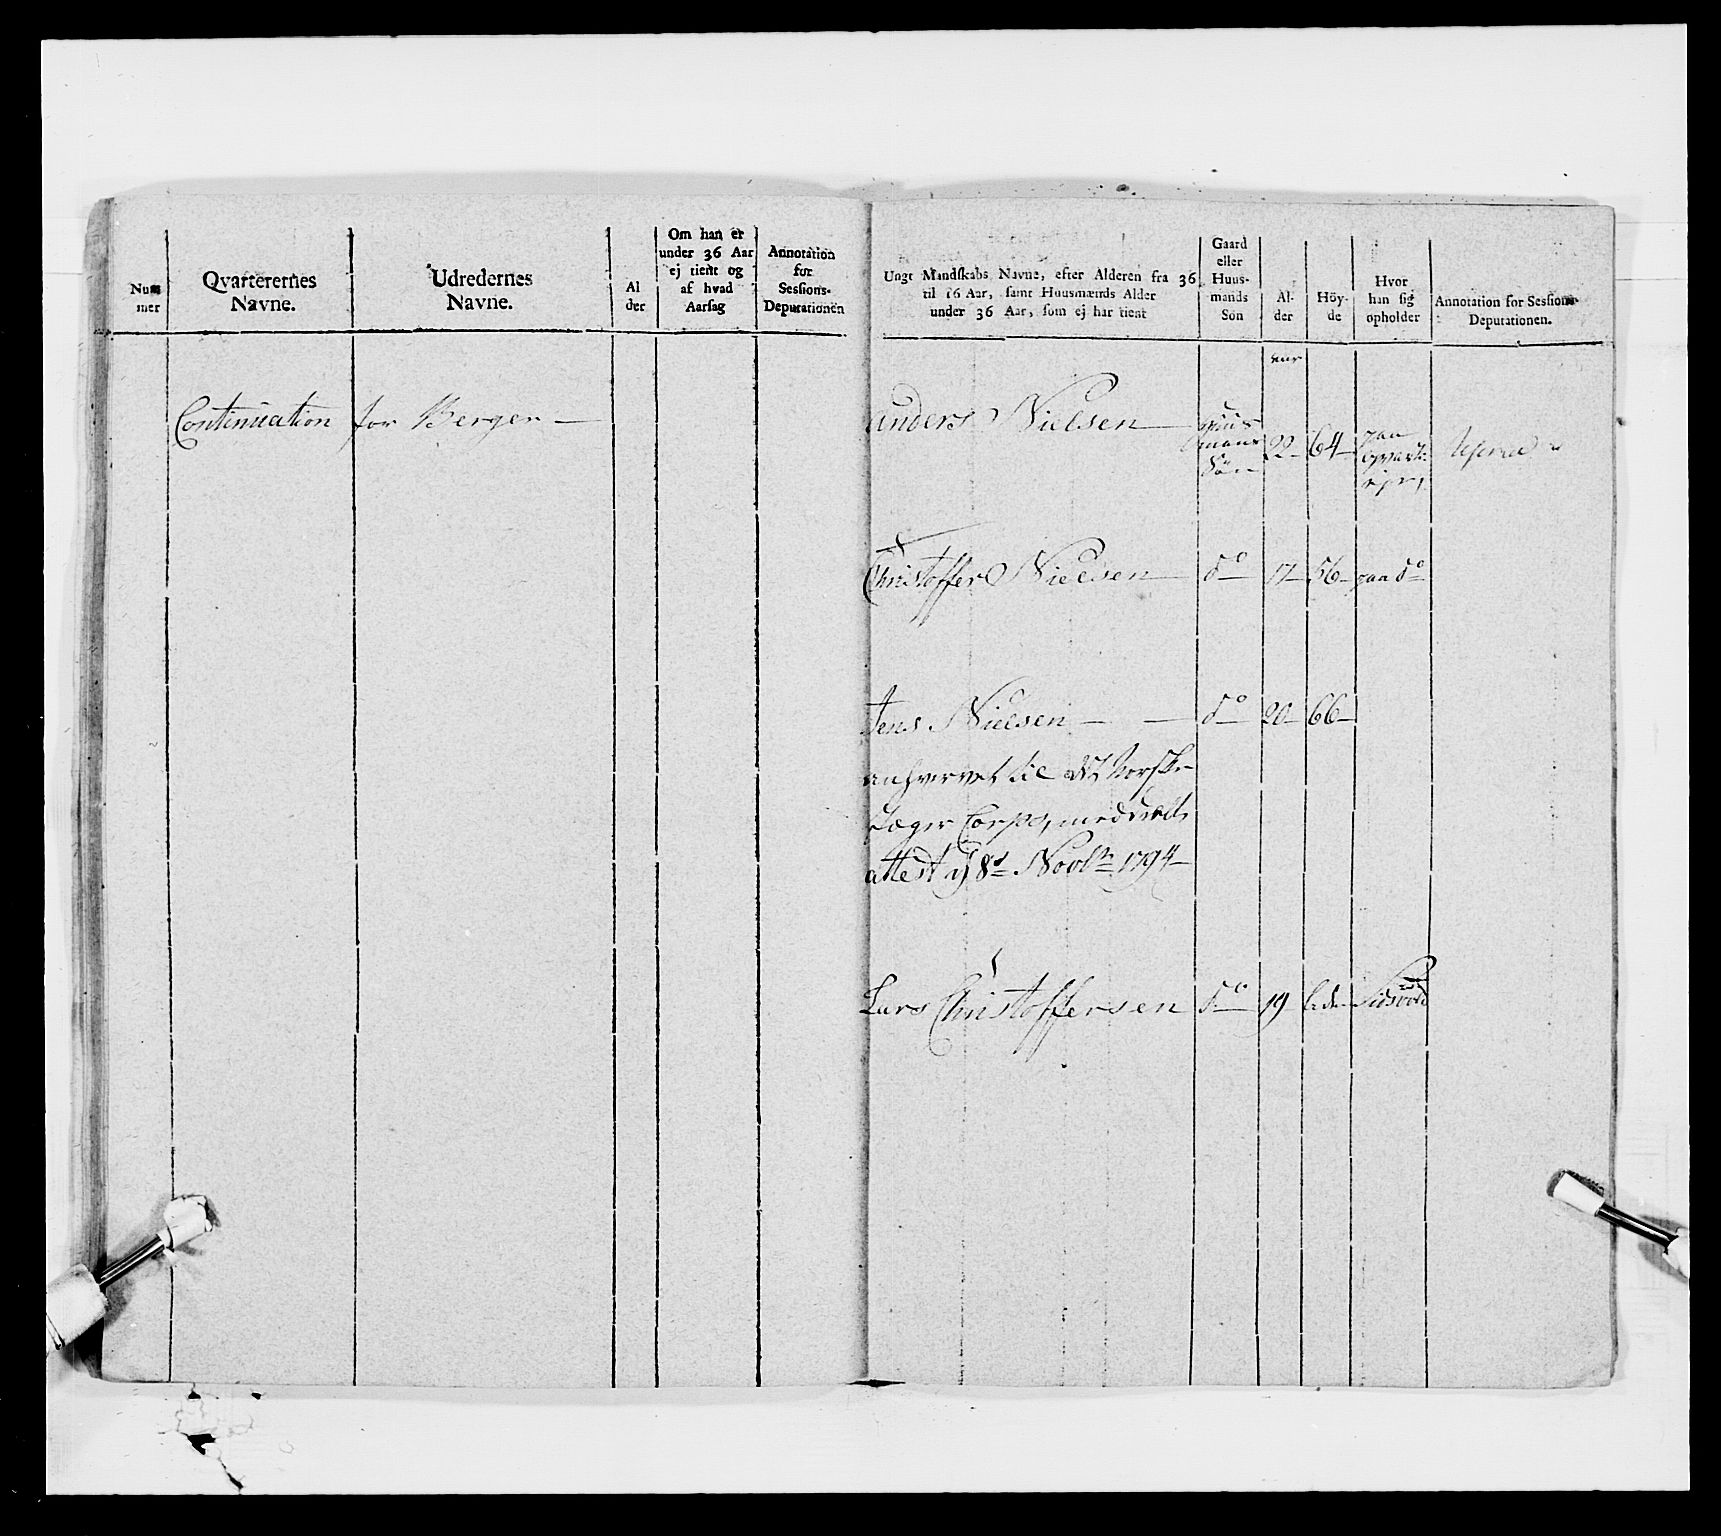 Num
mer
Qvarterernes
Navne.
Udredernes
Navne.
Al
der
Om han er
under 36 Aar
ej tient og
af hvad
Aarsag
Annotation
for
Sessions-
Deputationen
Continuation for Berger —
Ungt Mandskabs Navne, efter Alderen fra 36
til 16 Aar, samt Huusmænds Alder
under 36 Aar, som ej har tient
Gaard
eller
Huus-
mands
Søn
Al-
der
Höy-
de
Hvor
han sig
opholder
Annotation for Sessions-
Deputationen.
aar
anders Nielsen — Huus mans Søn 22 — 64 — paa
Christoffer Nielsen — do 17 — 56 — paa do
Jens Nielsen — — do 20 — 66 —
anhvervet til det Norske
Jæger Corps, meddeelt
attest 8de Novbr 1794 —
Lars Christoffersen do 19